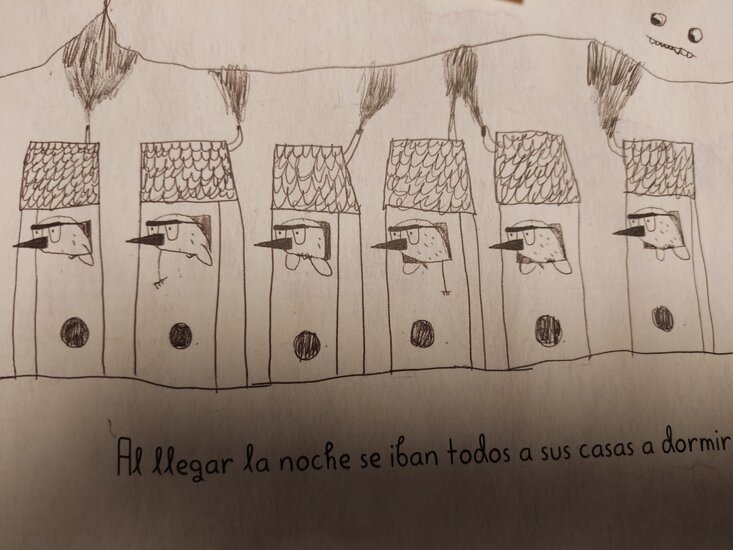 Al llegar la noche se iban todos a sus casas a dormir